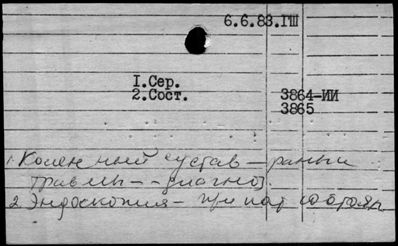 6.6.83.ГШ
1.Сер.
2.Сост. 3864-ИИ
3865
1. Коленный сустав - раны и
травмы - диагноз.
2. Эндоскопия - при пат состоян